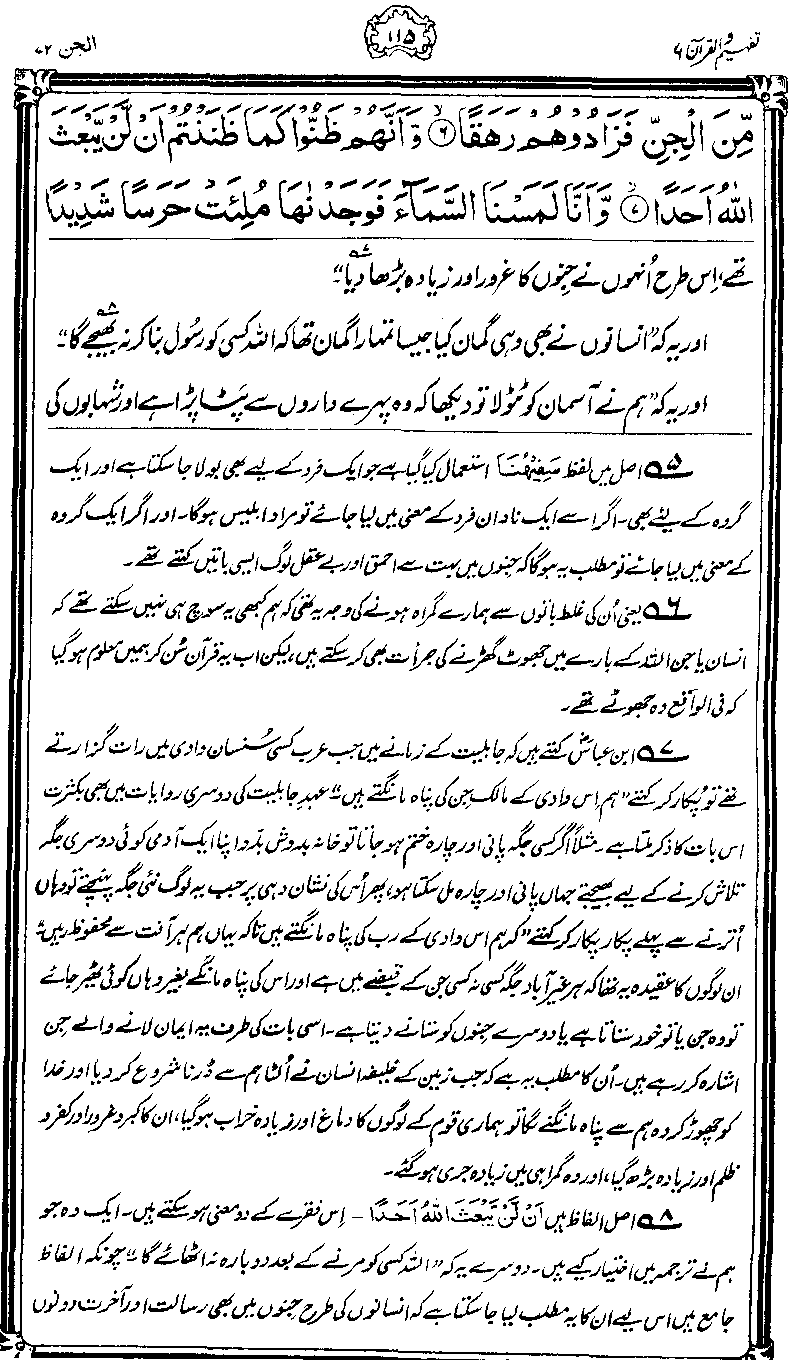 تفہیم القرآن ۶
۱۱۵
الجن ۷۲
مِّنَ الْجِنِّ فَزَادُوْهُمْ رَهَقًا ۙ﴿۶﴾ وَّاَنَّهُمْ ظَنُّوْا كَمَا ظَنَنْتُمْ اَنْ لَّنْ يَّبْعَثَ
اللّٰهُ اَحَدًا ۙ﴿۷﴾ وَّاَنَّا لَمَسْنَا السَّمَآءَ فَوَجَدْنٰهَا مُلِئَتْ حَرَسًا شَدِيْدًا
تھے، اِس طرح اُنہوں نے جِنوں کا غرور اور زیادہ بڑھا دیا“۔ ۷ھ
اور یہ کہ ”انسانوں نے بھی وہی گمان کیا جیسا تمہارا گمان تھا کہ اللہ کسی کو رسُول بنا کر نہ بھیجے گا“۔ ۸ھ
اور یہ کہ ”ہم نے آسمان کو ٹٹولا تو دیکھا کہ وہ پہرے داروں سے پَٹا پڑا ہے اور شہابوں کی
۵ھ اصل میں لفظ سَفِيْهُنَا استعمال کیا گیا ہے جو ایک فرد کے لیے بھی بولا جا سکتا ہے اور ایک
گروہ کے لیے بھی۔ اگر اسے ایک نادان فرد کے معنی میں لیا جائے تو مراد ابلیس ہوگا۔ اور اگر ایک گروہ
کے معنی میں لیا جائے تو مطلب یہ ہوگا کہ جنوں میں بہت سے احمق اور بے عقل لوگ ایسی باتیں کہتے تھے۔
۶ھ یعنی اُن کی غلط باتوں سے ہمارے گمراہ ہونے کی وجہ یہ تھی کہ ہم کبھی یہ سوچ ہی نہیں سکتے تھے کہ
انسان یا جن اللہ کے بارے میں جھوٹ گھڑنے کی جرأت بھی کر سکتے ہیں، لیکن اب یہ قرآن سُن کر ہمیں معلوم ہو گیا
کہ فی الواقع وہ جھوٹے تھے۔
۷ھ ابن عباسؓ کہتے ہیں کہ جاہلیت کے زمانے میں جب عرب کسی سُنسان وادی میں رات گزارتے
تھے تو پُکار کر کہتے ”ہم اِس وادی کے مالک جن کی پناہ مانگتے ہیں“۔ عہدِ جاہلیت کی دوسری روایات میں بھی بکثرت
اس بات کا ذکر ملتا ہے۔ مثلاً اگر کسی جگہ پانی اور چارہ ختم ہو جاتا تو خانہ بدوش بدّو اپنا ایک آدمی کوئی دوسری جگہ
تلاش کرنے کے لیے بھیجتے جہاں پانی اور چارہ مل سکتا ہو، پھر اُس کی نشان دہی پر جب یہ لوگ نئی جگہ پہنچتے تو وہاں
اُترنے سے پہلے پکار پکار کر کہتے ”کہ ہم اس وادی کے رب کی پناہ مانگتے ہیں تاکہ یہاں ہم ہر آفت سے محفوظ رہیں“
ان لوگوں کا عقیدہ یہ تھا کہ ہر غیر آباد جگہ کسی نہ کسی جن کے قبضے میں ہے اور اس کی پناہ مانگے بغیر وہاں کوئی ٹھہر جائے
تو وہ جن یا تو خود ستاتا ہے یا دوسرے جنوں کو ستانے دیتا ہے۔ اسی بات کی طرف یہ ایمان لانے والے جن
اشارہ کر رہے ہیں۔ اُن کا مطلب یہ ہے کہ جب زمین کے خلیفہ انسان نے اُلٹا ہم سے ڈرنا شروع کر دیا اور خدا
کو چھوڑ کر وہ ہم سے پناہ مانگنے لگا تو ہماری قوم کے لوگوں کا دماغ اور زیادہ خراب ہو گیا، ان کا کبر و غرور اور کفر و
ظلم اور زیادہ بڑھ گیا، اور وہ گمراہی میں زیادہ جری ہو گئے۔
۸ھ اصل الفاظ ہیں اَنْ لَّنْ يَّبْعَثَ اللّٰهُ اَحَدًا ۔ اِس فقرے کے دو معنی ہو سکتے ہیں۔ ایک وہ جو
ہم نے ترجمہ میں اختیار کیے ہیں۔ دوسرے یہ کہ ”اللہ کسی کو مرنے کے بعد دوبارہ نہ اٹھائے گا“۔ چونکہ الفاظ
جامع ہیں اس لیے ان کا یہ مطلب لیا جا سکتا ہے کہ انسانوں کی طرح جنوں میں بھی رسالت اور آخرت دونوں